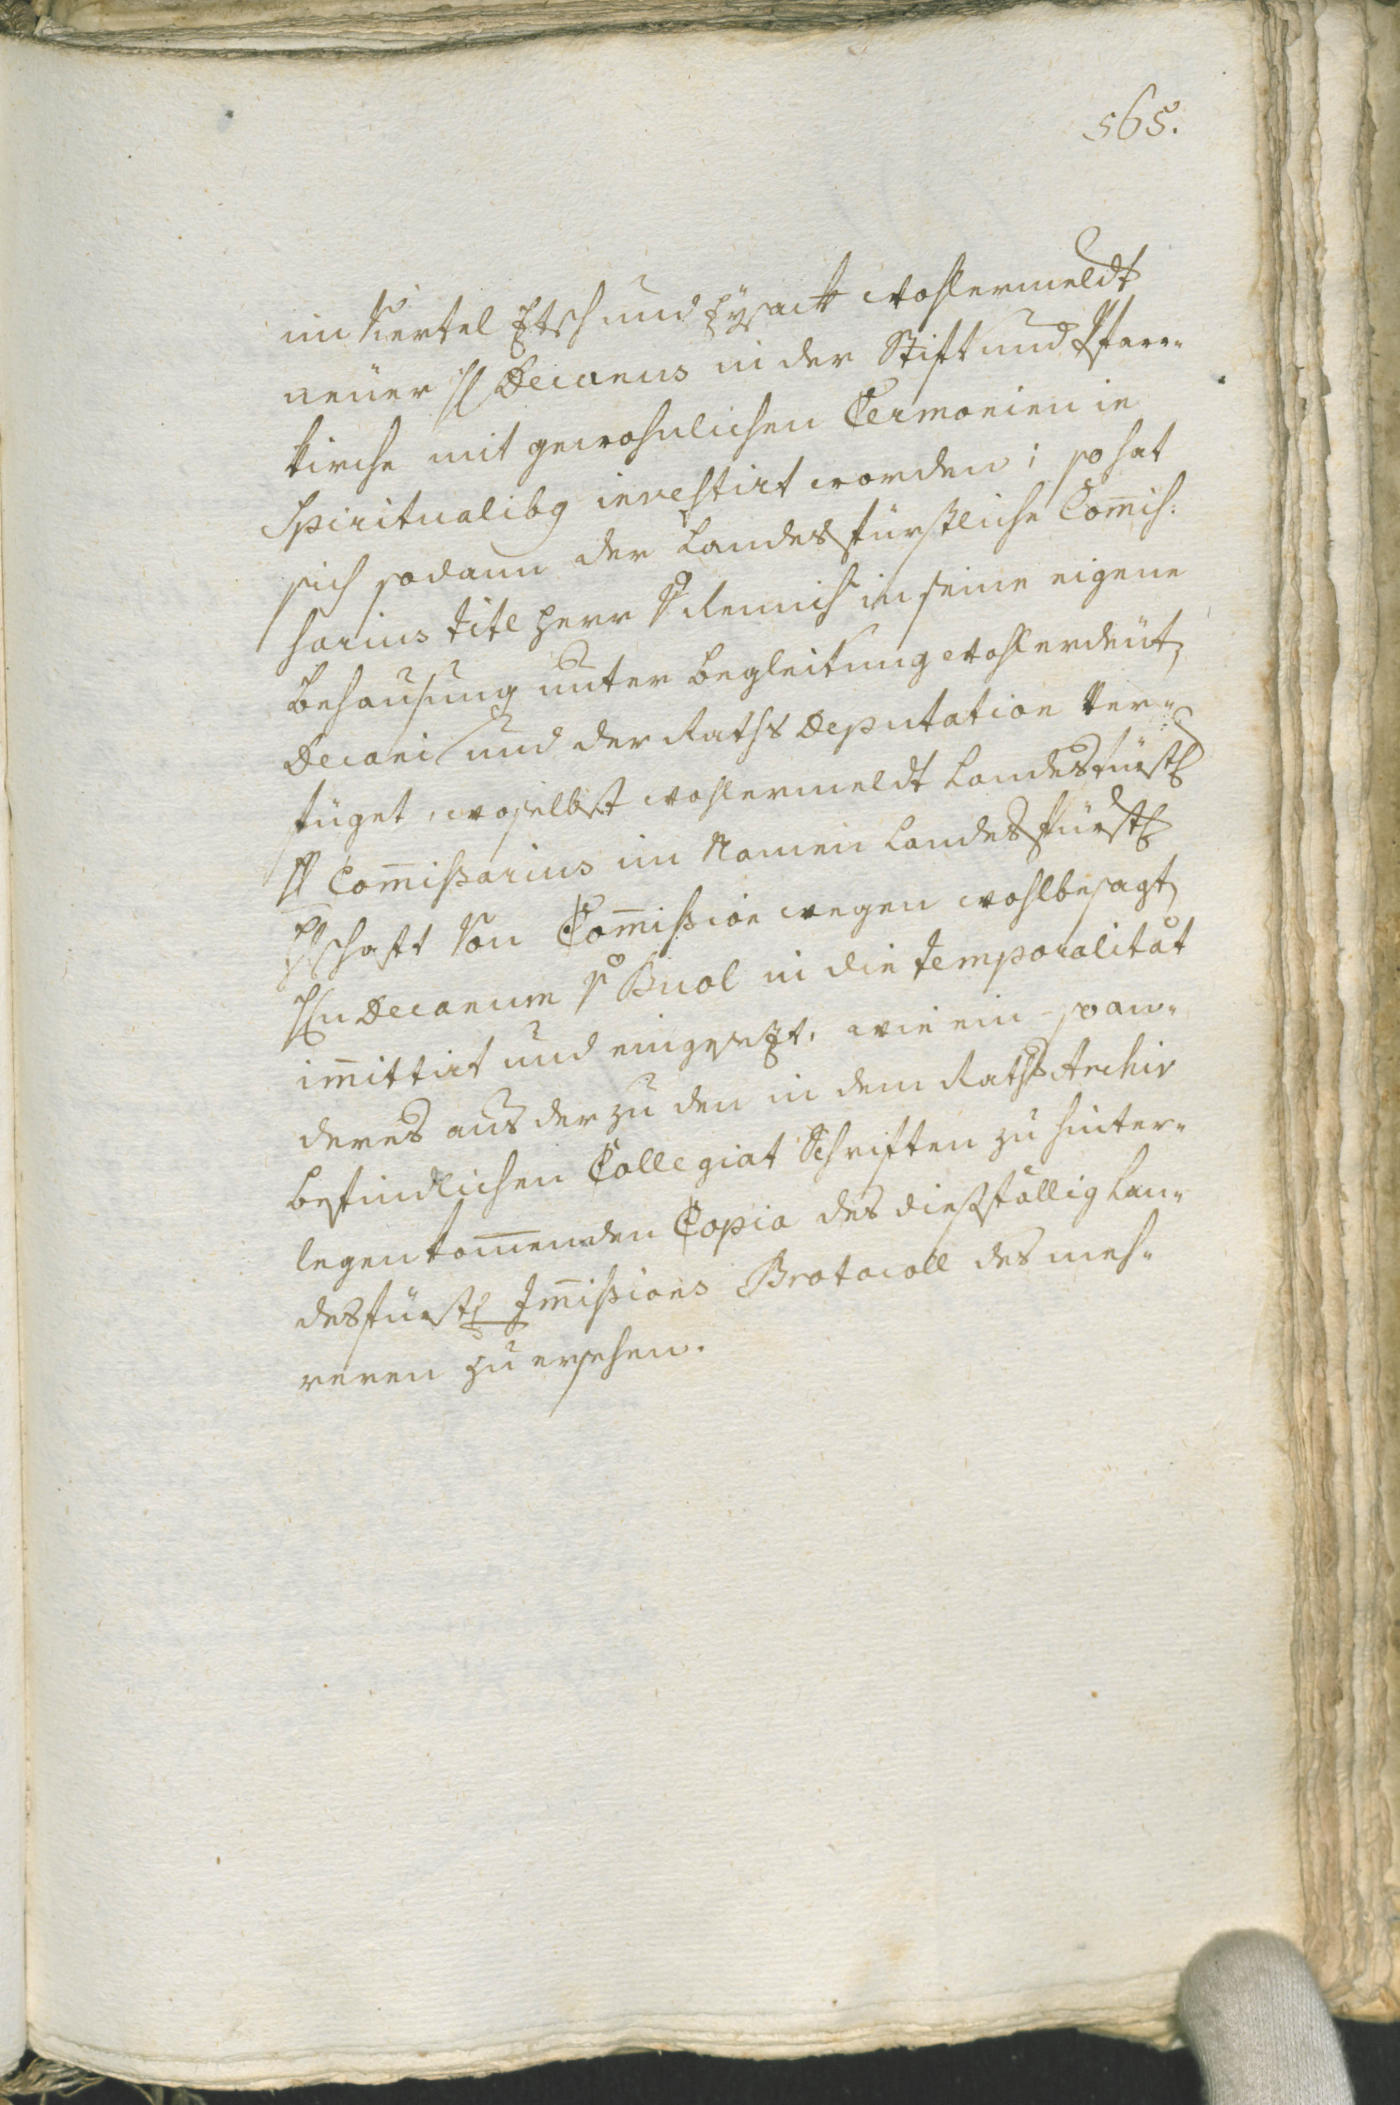 565.
im Viertel Etsch und Eysack wohlermeldt
neüer H Decanus in der Stift und Pfarr-
kirche mit gewohnlichen Cermonien in
Spiritualibg investirt worden; so hat
sich sodann der Landesfürstliche Com̅is-
sarius titl Herr v. in seine eigene
Behausung unter Begleitung wohlerdeüt
Decani und der Raths Deputation ver-
füget, woselbst wohlermeldt Landesfürstl
H Com̅issarius im Namen Landesfürstl
Hschaft von Com̅ission wegen wohlbesagt
Hn Decanum v. Buol in die temporalität
im̅ittirt und eingesezt, wie ein- so an-
deres aus der zu den in dem Raths Archiv
befindlichen Collegiat Schriften zu hinter-
legen kom̅enden Copia des dießfällig Lan-
desfürstl Im̅issions Protocoll des meh-
reren zu ersehen.